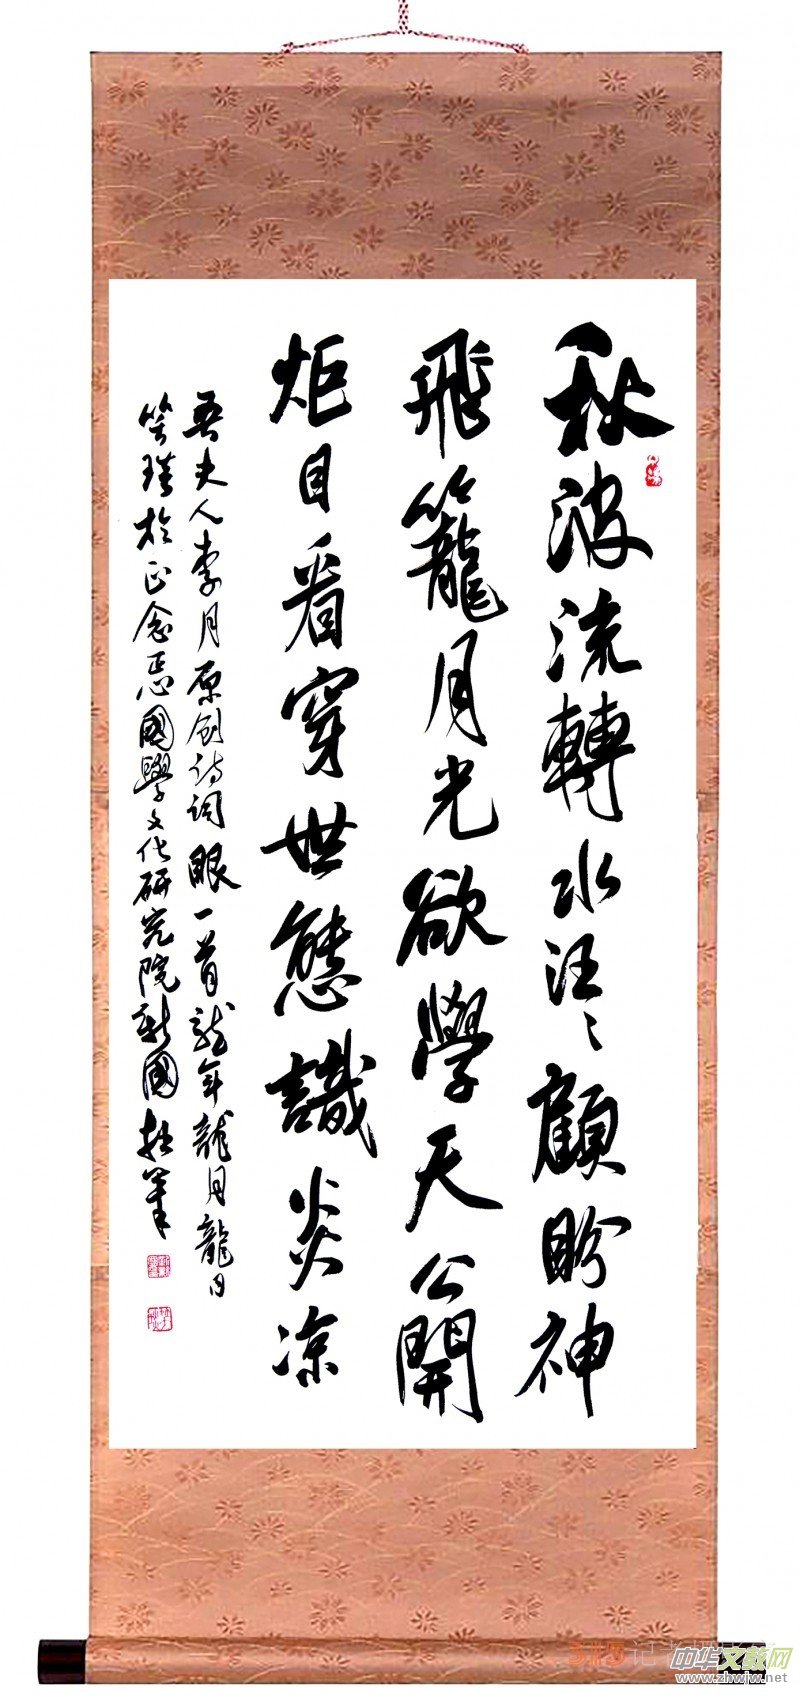 秋波流轉水汪〻顧盼神
飛籠月光欲學天公開
炬目看穿世態識炎凉
吾夫人李月原创诗词眼一首龍年龍月龍日
於正念恩國學文化研究院 國 拙筆
中华文教网
www.zhwjw.net